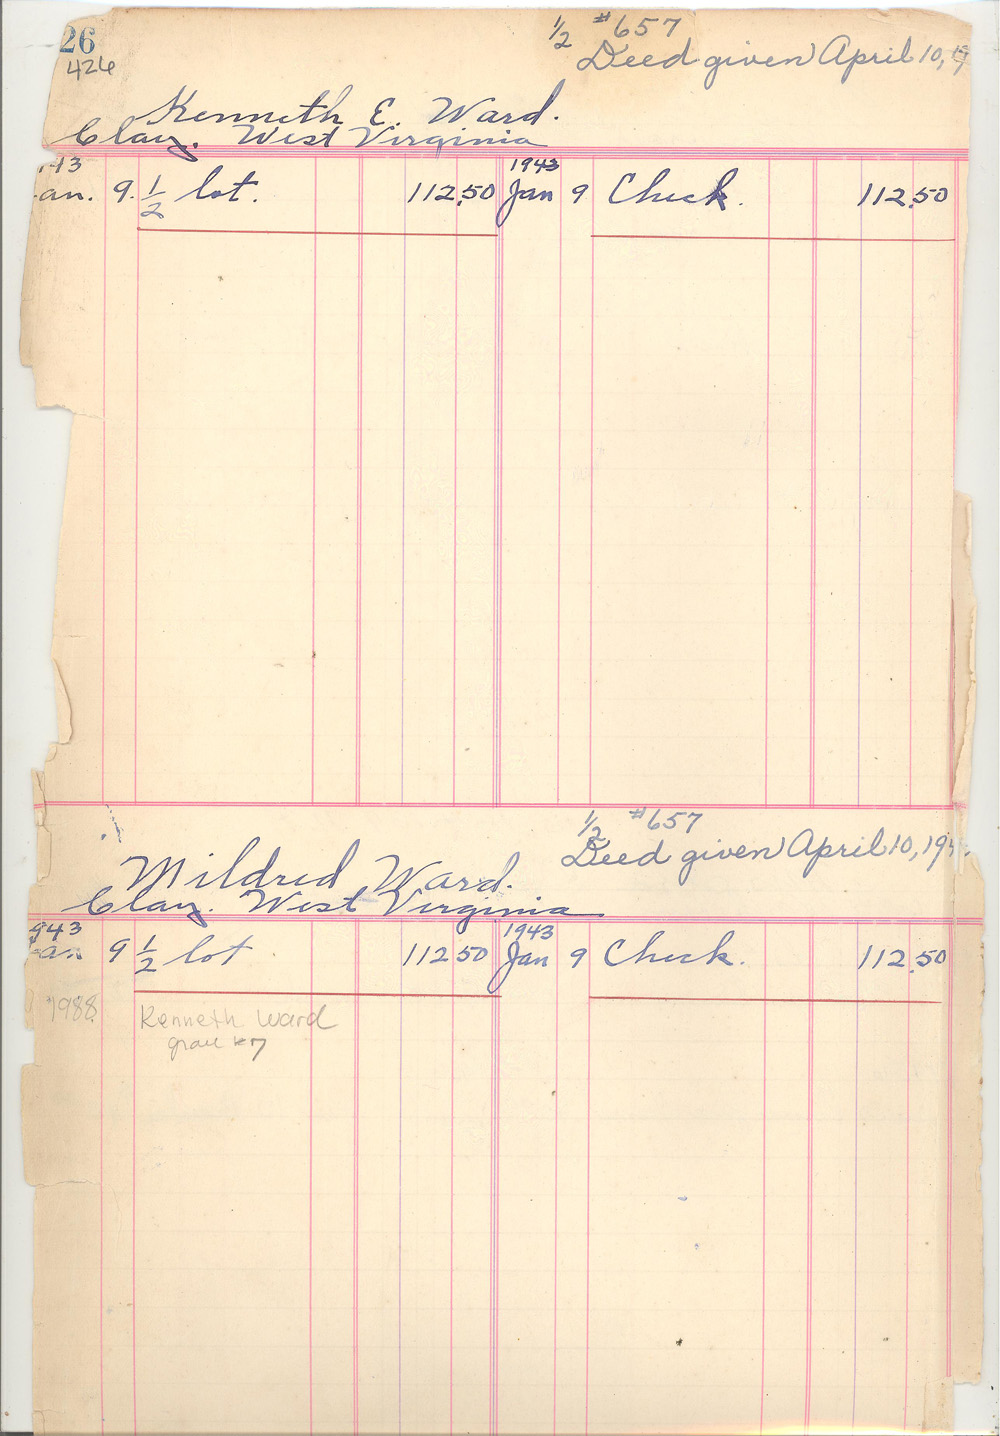 26
426
1/2 #657
Deed given April 10, 19
Kenneth E. Ward.
Clay. West Virginia
43 1943
an. 9. 1/2 lot. 112.50 Jan 9 Check. 112.50
1/2 #657
Deed given April 10, 19
Mildred Ward.
Clay. West Virginia
943 1943
an. 9 1/2 lot 112 50 Jan 9 Check. 112.50
1988 Kenneth Ward
grave #7